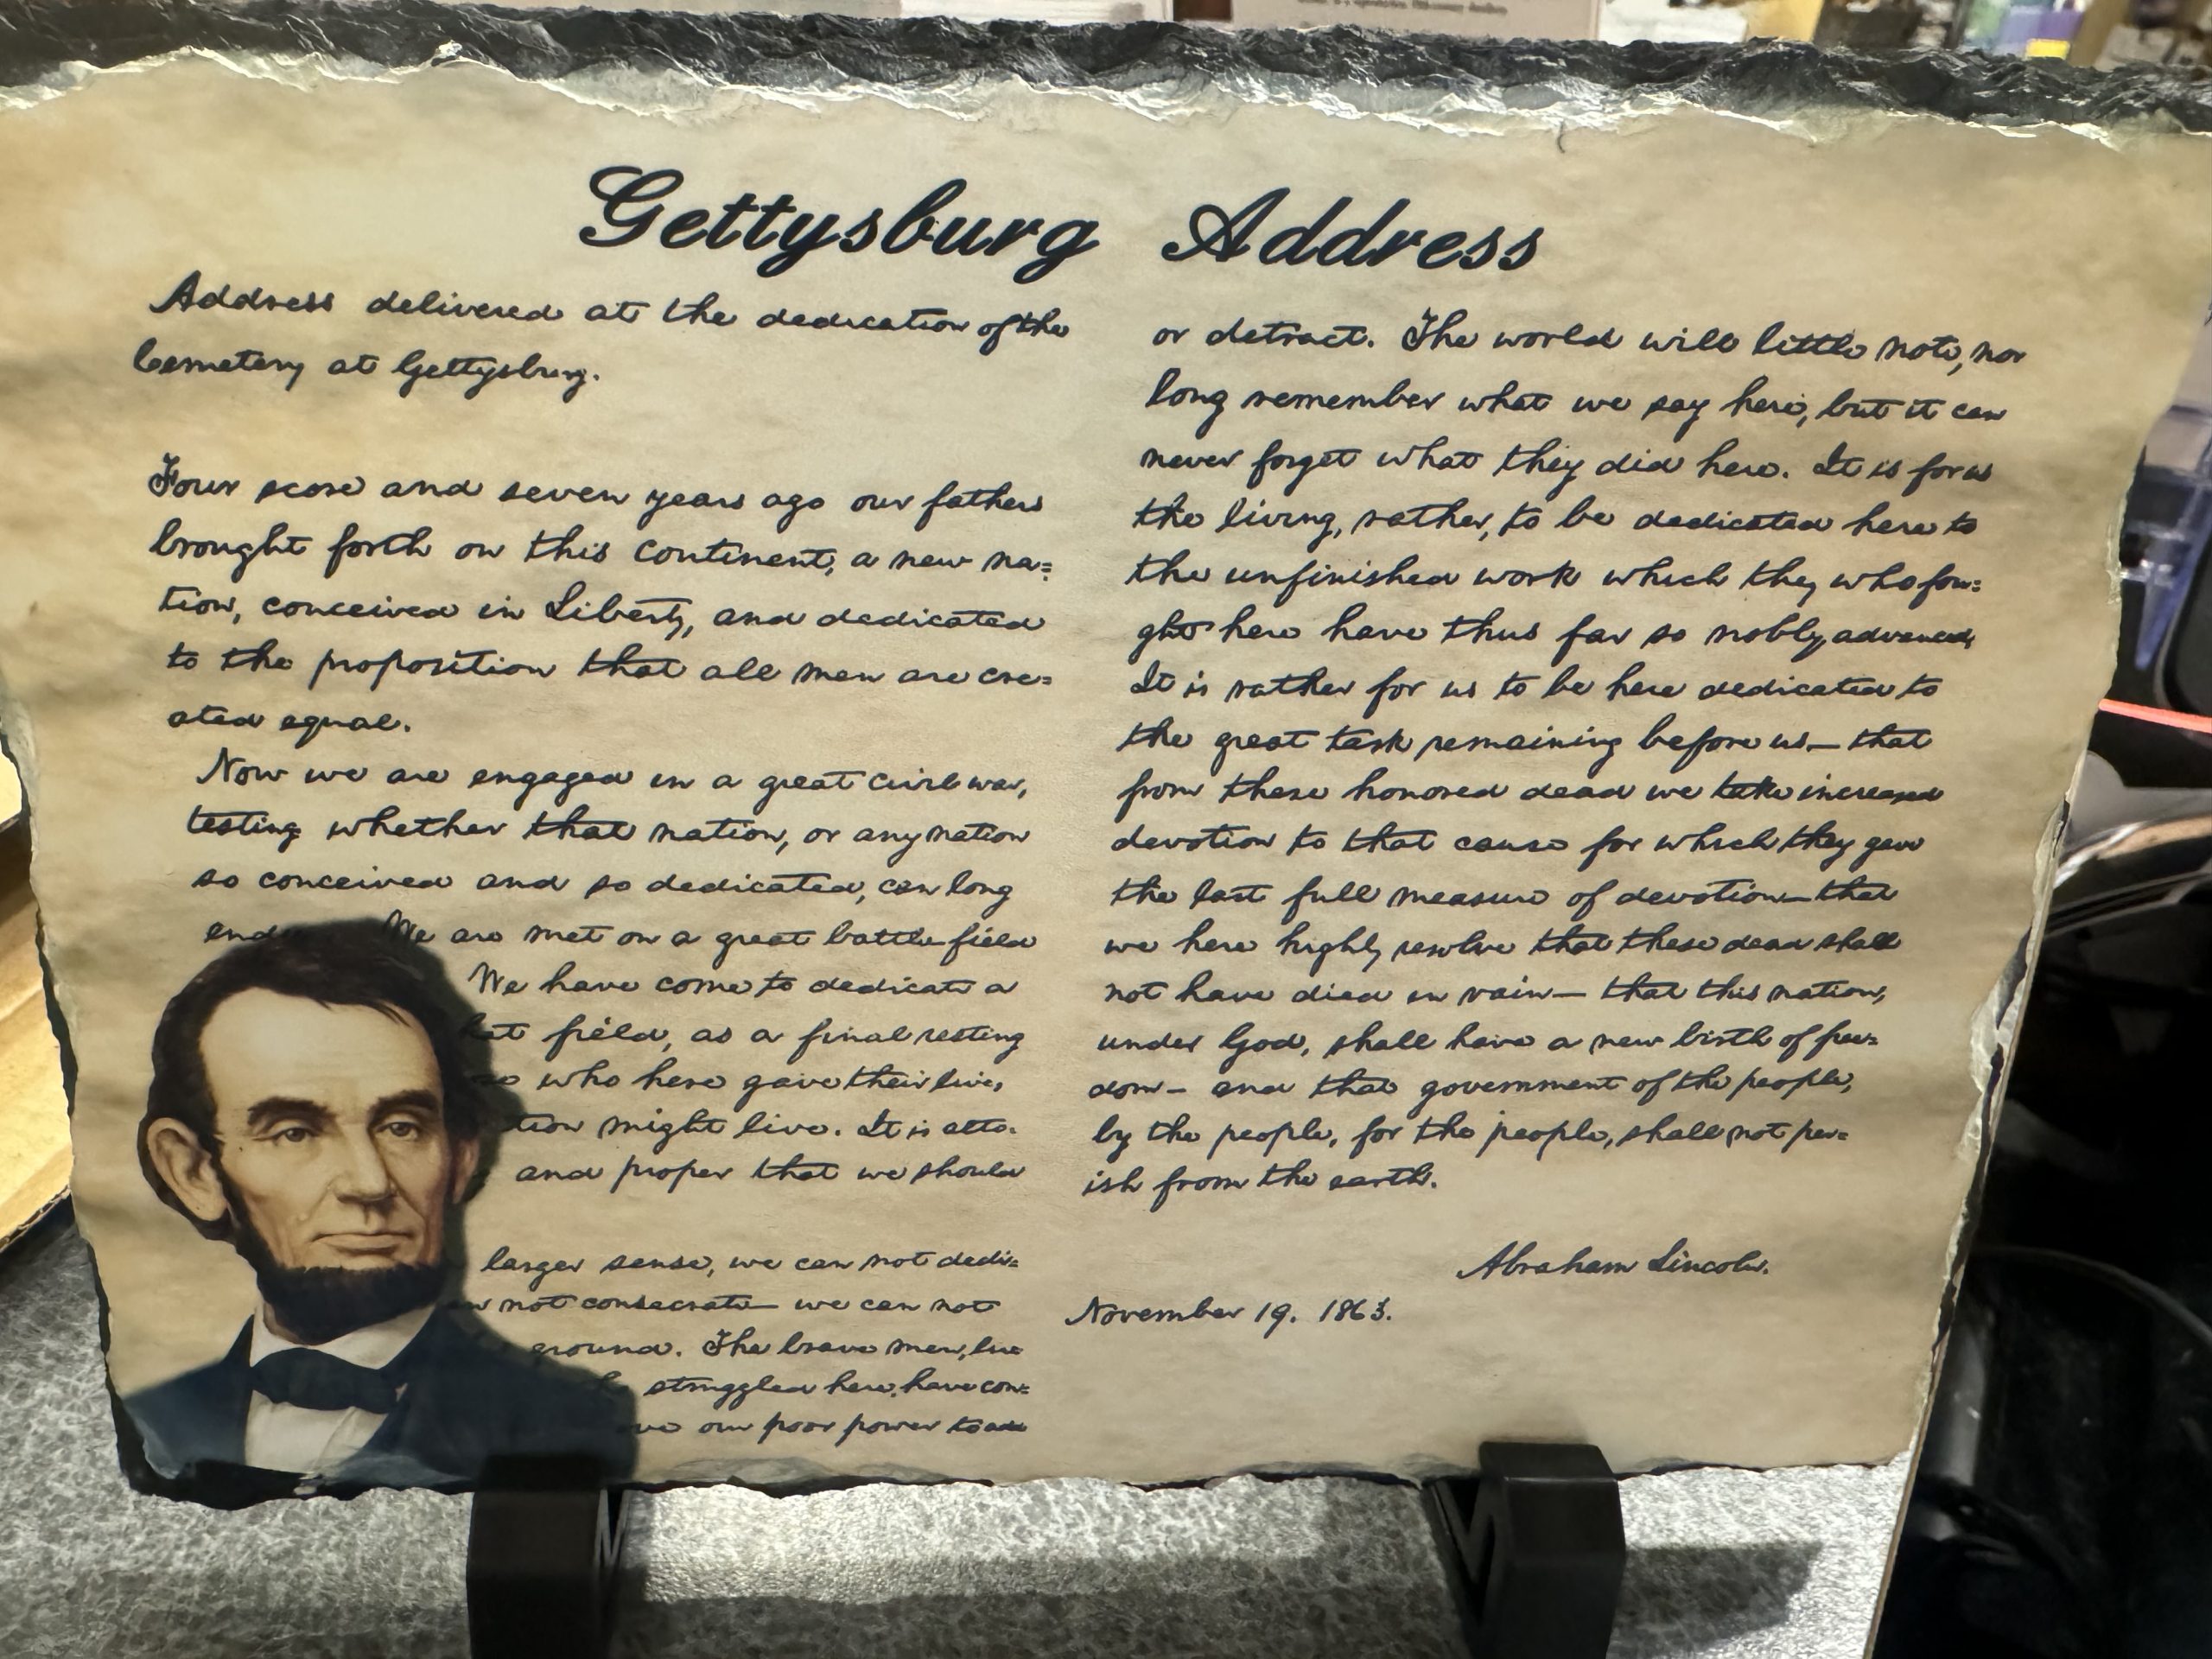 Gettysburg Address
Address delivered at the dedication of the
Cemetery at Gettysburg.
Four score and seven years ago our fathers
brought forth on this continent, a new na=
tion, conceived in Liberty, and dedicated
to the proposition that all men are cre=
ated equal.
Now we are engaged in a great civil war,
testing whether that nation, or any nation
so conceived and so dedicated, can long
We are met on a great battle-field
We have come to dedicate a
field, as a final resting
who here gave their lives,
tion might live. It is alto=
and proper that we should
larger sense, we can not dedi=
not consecrate— we can not
ground. The brave men, liv=
struggled here, have con=
our poor power to add
or detract. The world will little note, nor
long remember what we say here, but it can
never forget what they did here. It is for us
the living, rather, to be dedicated here to
the unfinished work which they who fou=
ght here have thus far so nobly advanced.
It is rather for us to be here dedicated to
the great task remaining before us— that
from these honored dead we take increased
devotion to that cause for which they gave
the last full measure of devotion— that
we here highly resolve that these dead shall
not have died in vain— that this nation,
under God, shall have a new birth of free=
dom— and that government of the people,
by the people, for the people, shall not per=
ish from the earth.
Abraham Lincoln.
November 19. 1863.